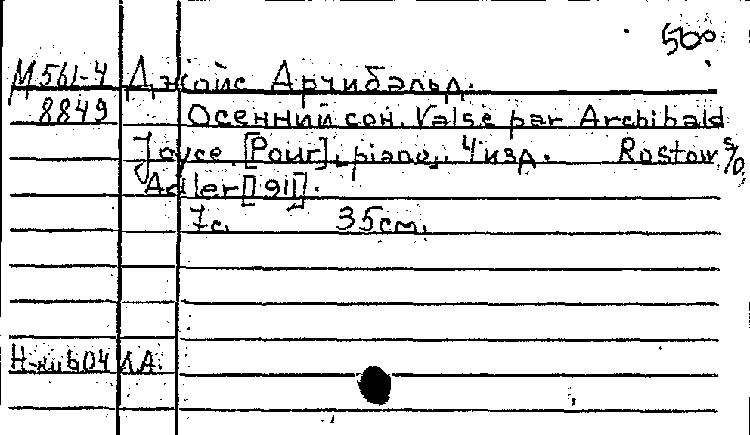 500
М561-4 Джойс Арчибальд.
8849 Осенний сон. Valse par Archibald
Joyce [Pour], piano,. 4 изд. Rostow s/D,
Adler [191].
7с. 35см.
ЛА.